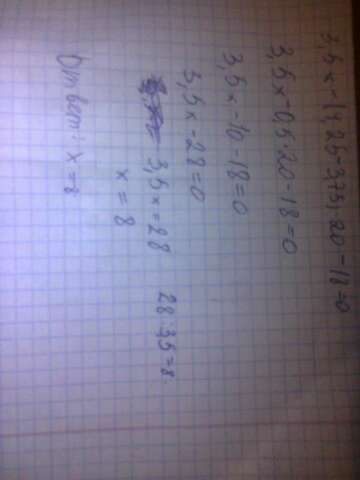 3,5x-(4,25-3,75)·20-18=0
3,5x-0,5·20-18=0
3,5x-10-18=0
3,5x-28=0
3,5x=28 28:3,5=8
x=8
Ответ: x=8